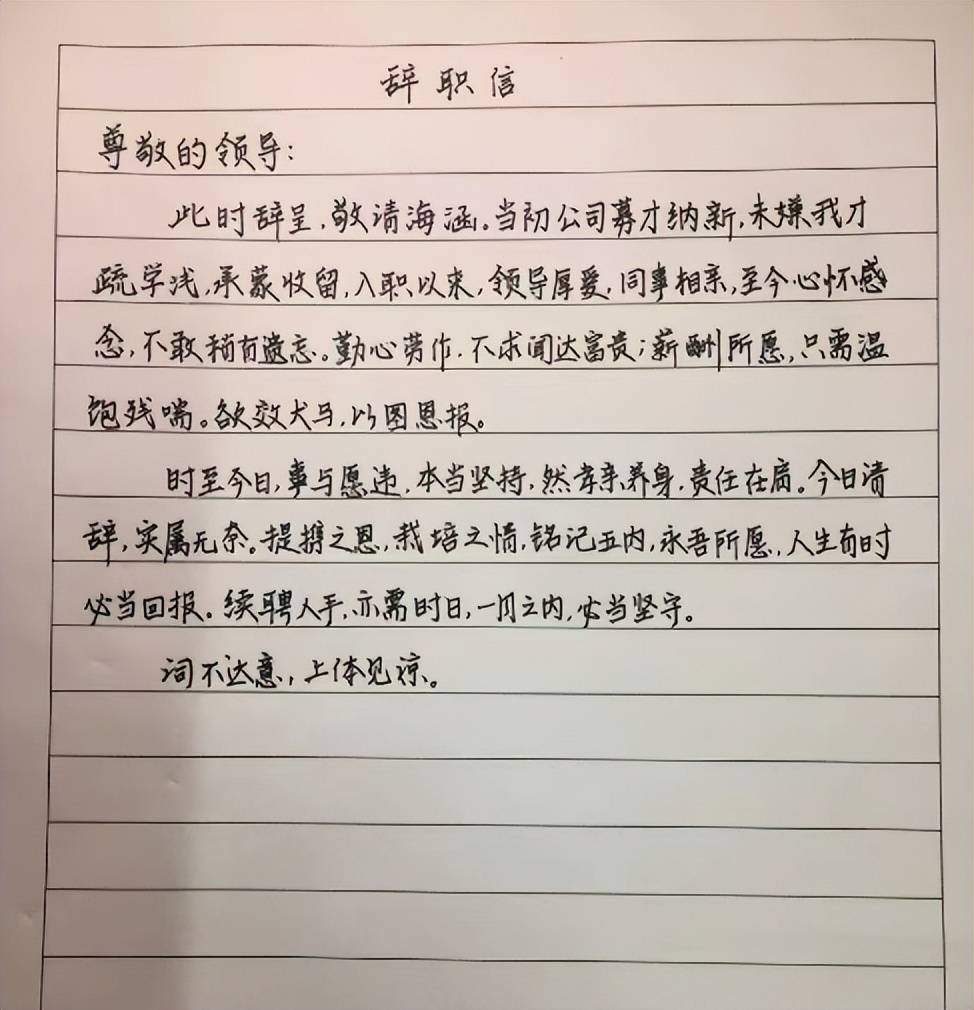 辞职信
尊敬的领导:
此时辞呈,敬请海涵。当初公司募才纳新,未嫌我才
疏学浅,承蒙收留,入职以来,领导厚爱,同事相亲,至今心怀感
念,不敢稍有遗忘。勤心劳作.不求闻达富贵;薪酬所愿,只需温
饱残喘。欲效犬马,以图恩报。
时至今日,事与愿违.本当坚持,然孝亲养身,责任在肩。今日请
辞,实属无奈。提携之恩,栽培之情,铭记五内,永吾所愿,人生有时
必当回报。续聘人手,亦需时日,一月之内,必当坚守。
词不达意,上体见谅。